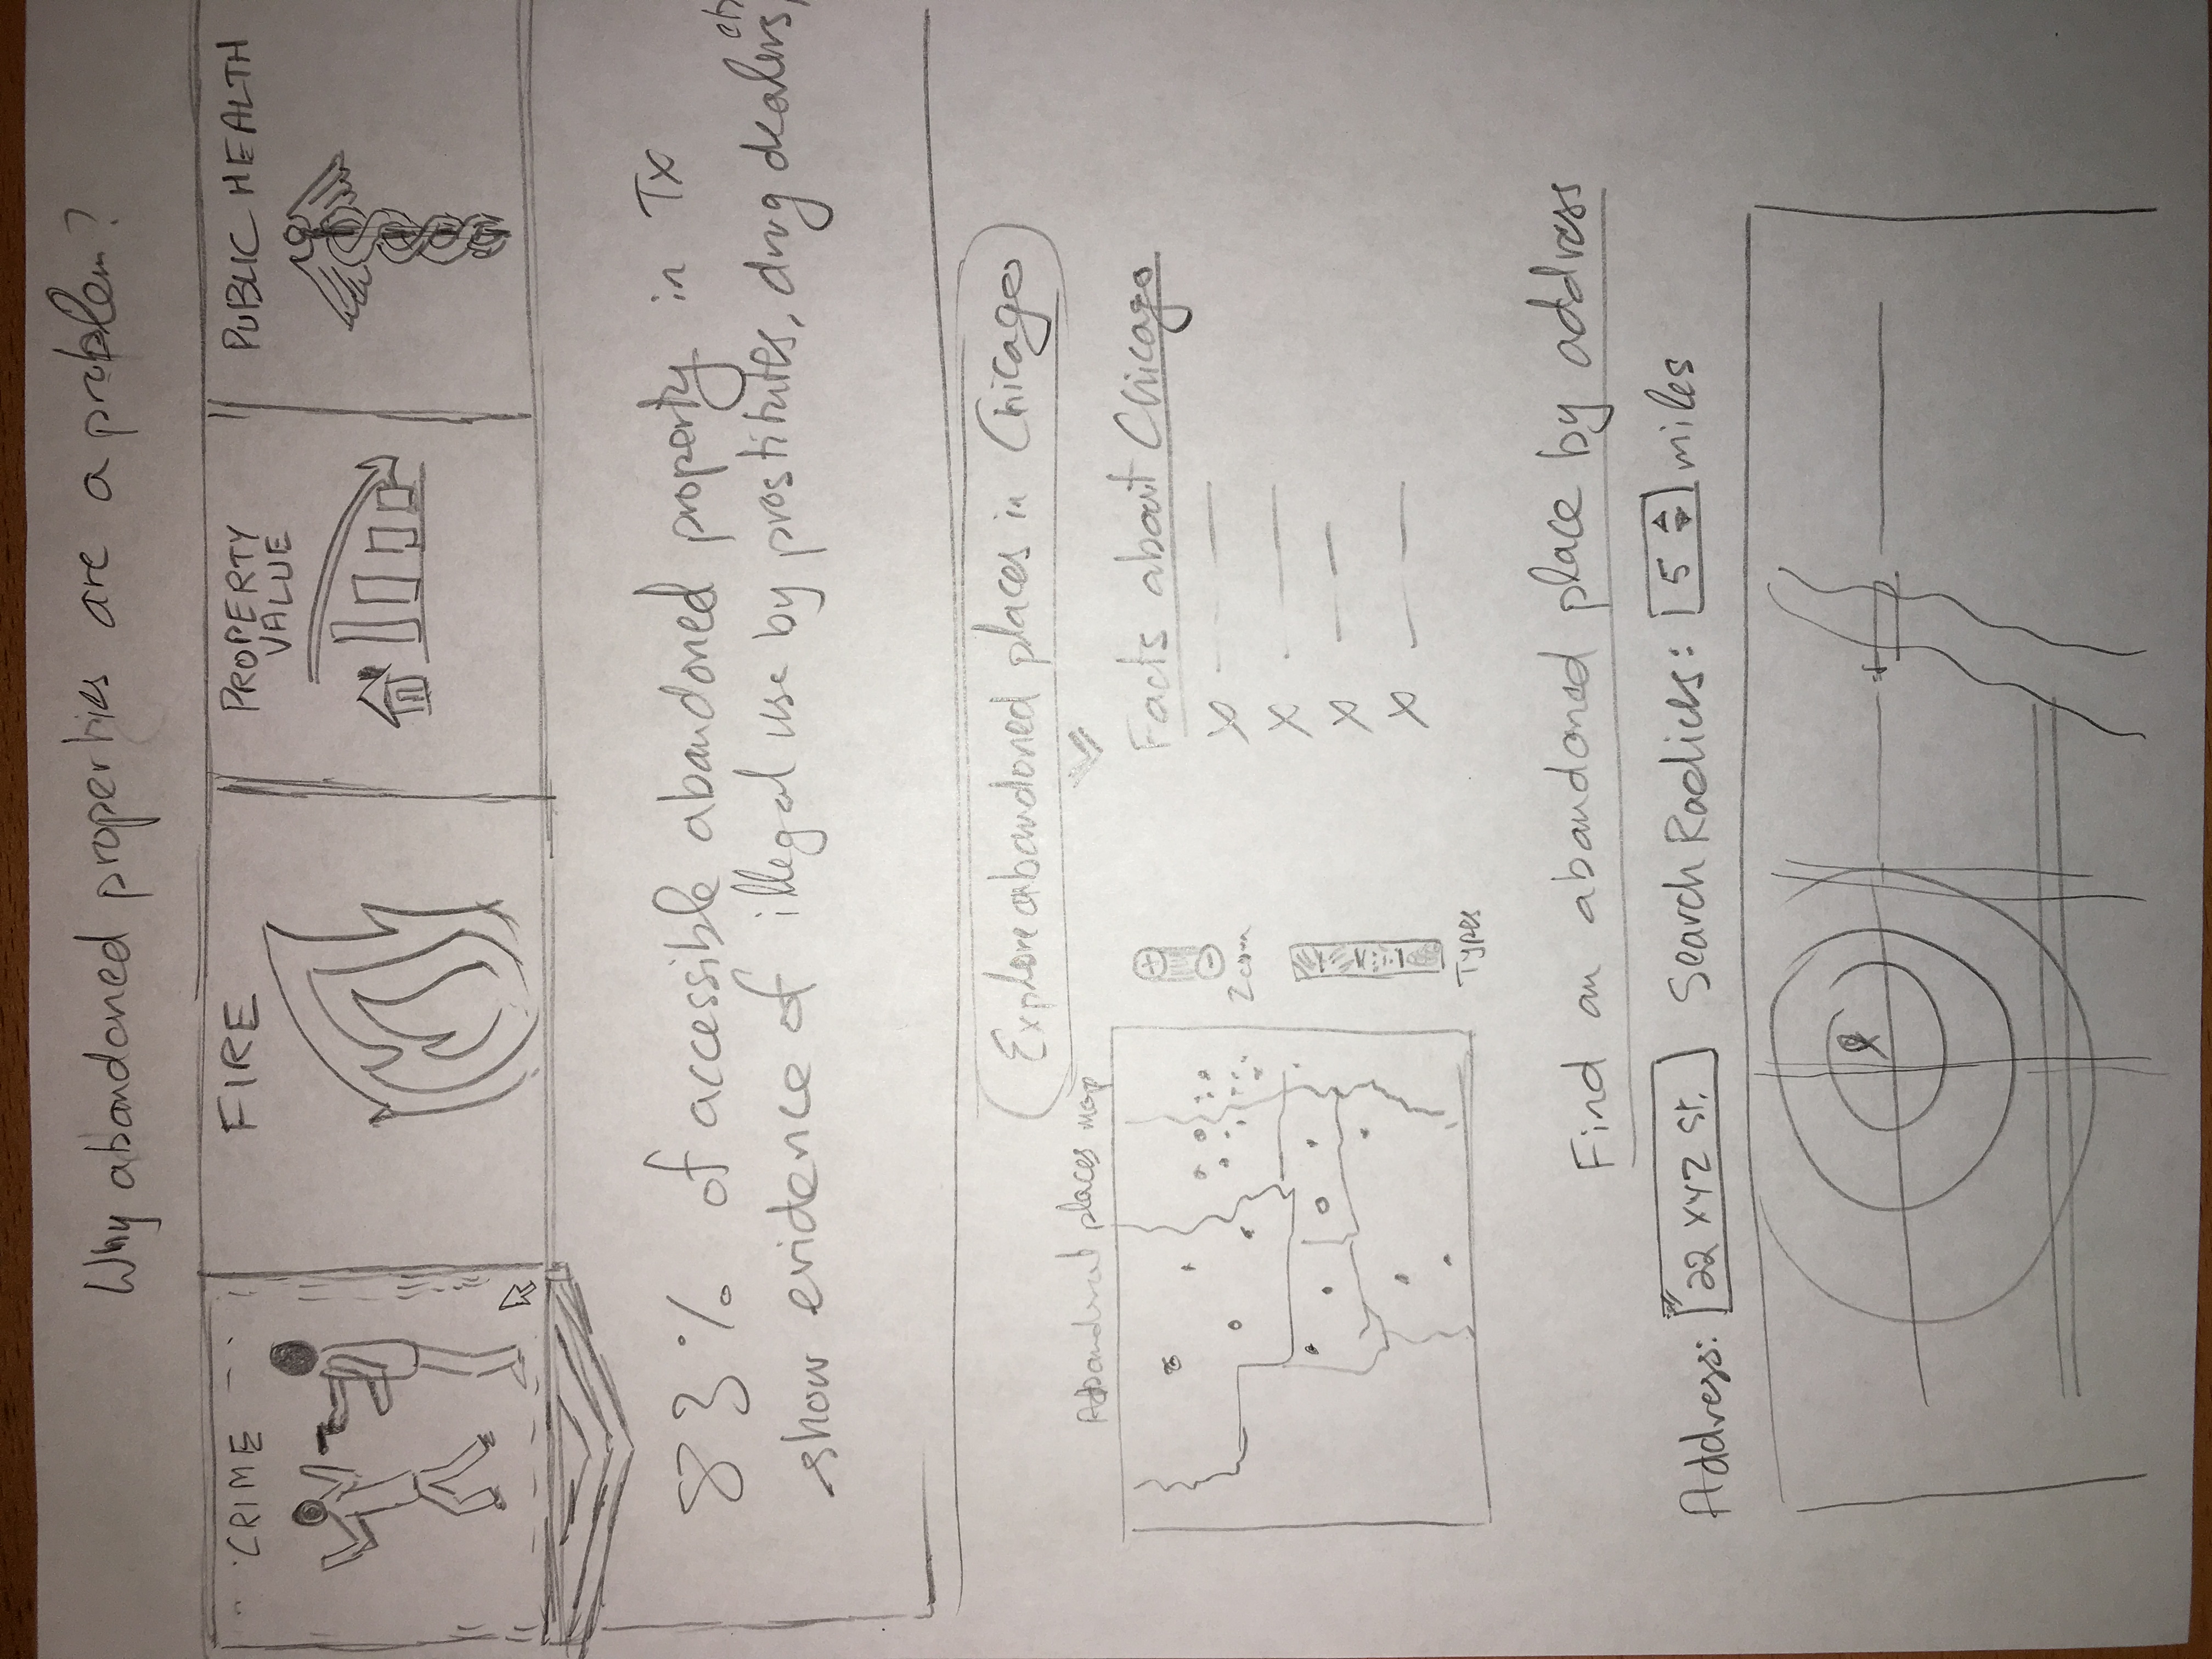 Why abandoned properties are a problem?
CRIME
FIRE
PROPERTY
VALUE
PUBLIC HEALTH
83% of accessible abandoned property in Tx
show evidence of illegal use by prostitutes, drug dealers, etc
Explore abandoned places in Chicago
Abandoned places map
Facts about Chicago
+
-
Zoom
Types
Find an abandoned place by address
Address: 22 XYZ St. Search Radius: 5 miles